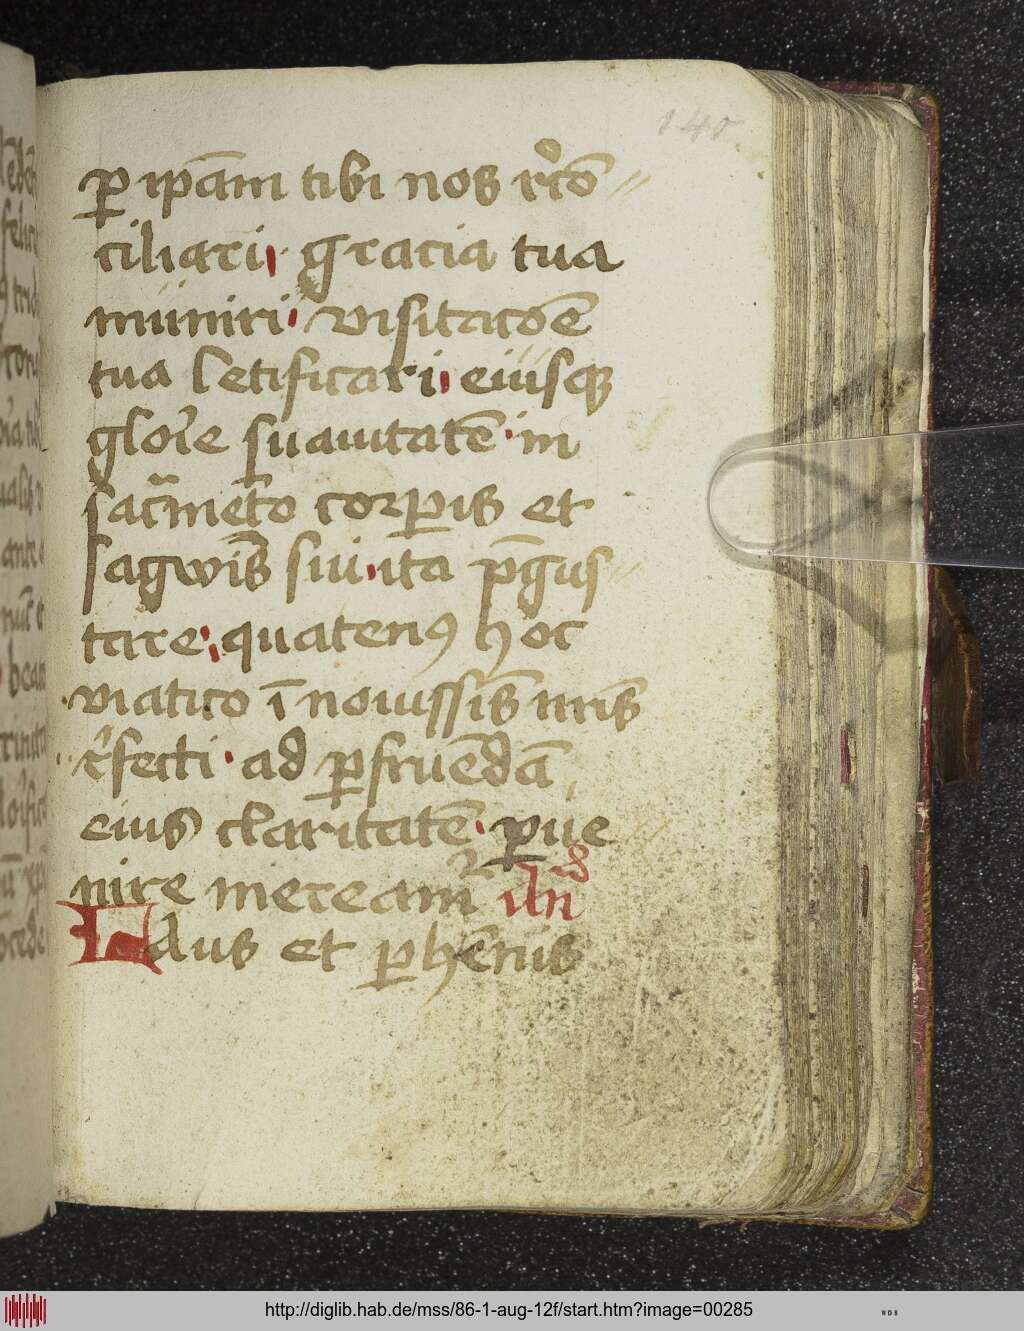 140
ꝑ ip̄am tibi nos r̾cō //
ciliari gracia tua
muniri visitacōē
tua letificari eiusqꝫ
glor̾e suauitatē in
sac̄mēto corꝑis et
sagwīs sui ita p̄gus //
tare quatenꝰ hoc
viatico ī nouissīs nr̄is
r̾fecti ad ꝑfruēdā
eius claritatē ꝑue //
nire mereamᷣ
Laus et ꝑhēnis
http://diglib.hab.de/mss/86-1-aug-12f/start.htm?image=00285